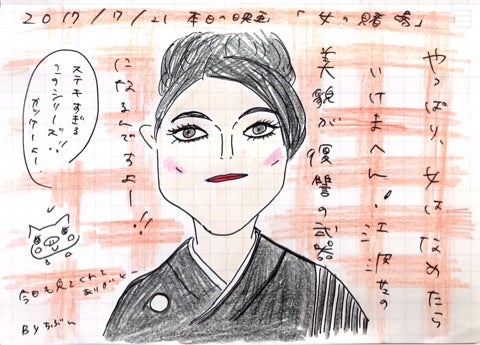 2017/7/21 本日の映画 「女の賭場」
やっぱり、女はなめたら
いけまへん。江波杏子の
美貌が復讐の武器
になるんですよー!!
ステキすぎる
このシリーズ!!
ガッツーよー
今日も見てくれて
ありがとー
BYちぶー